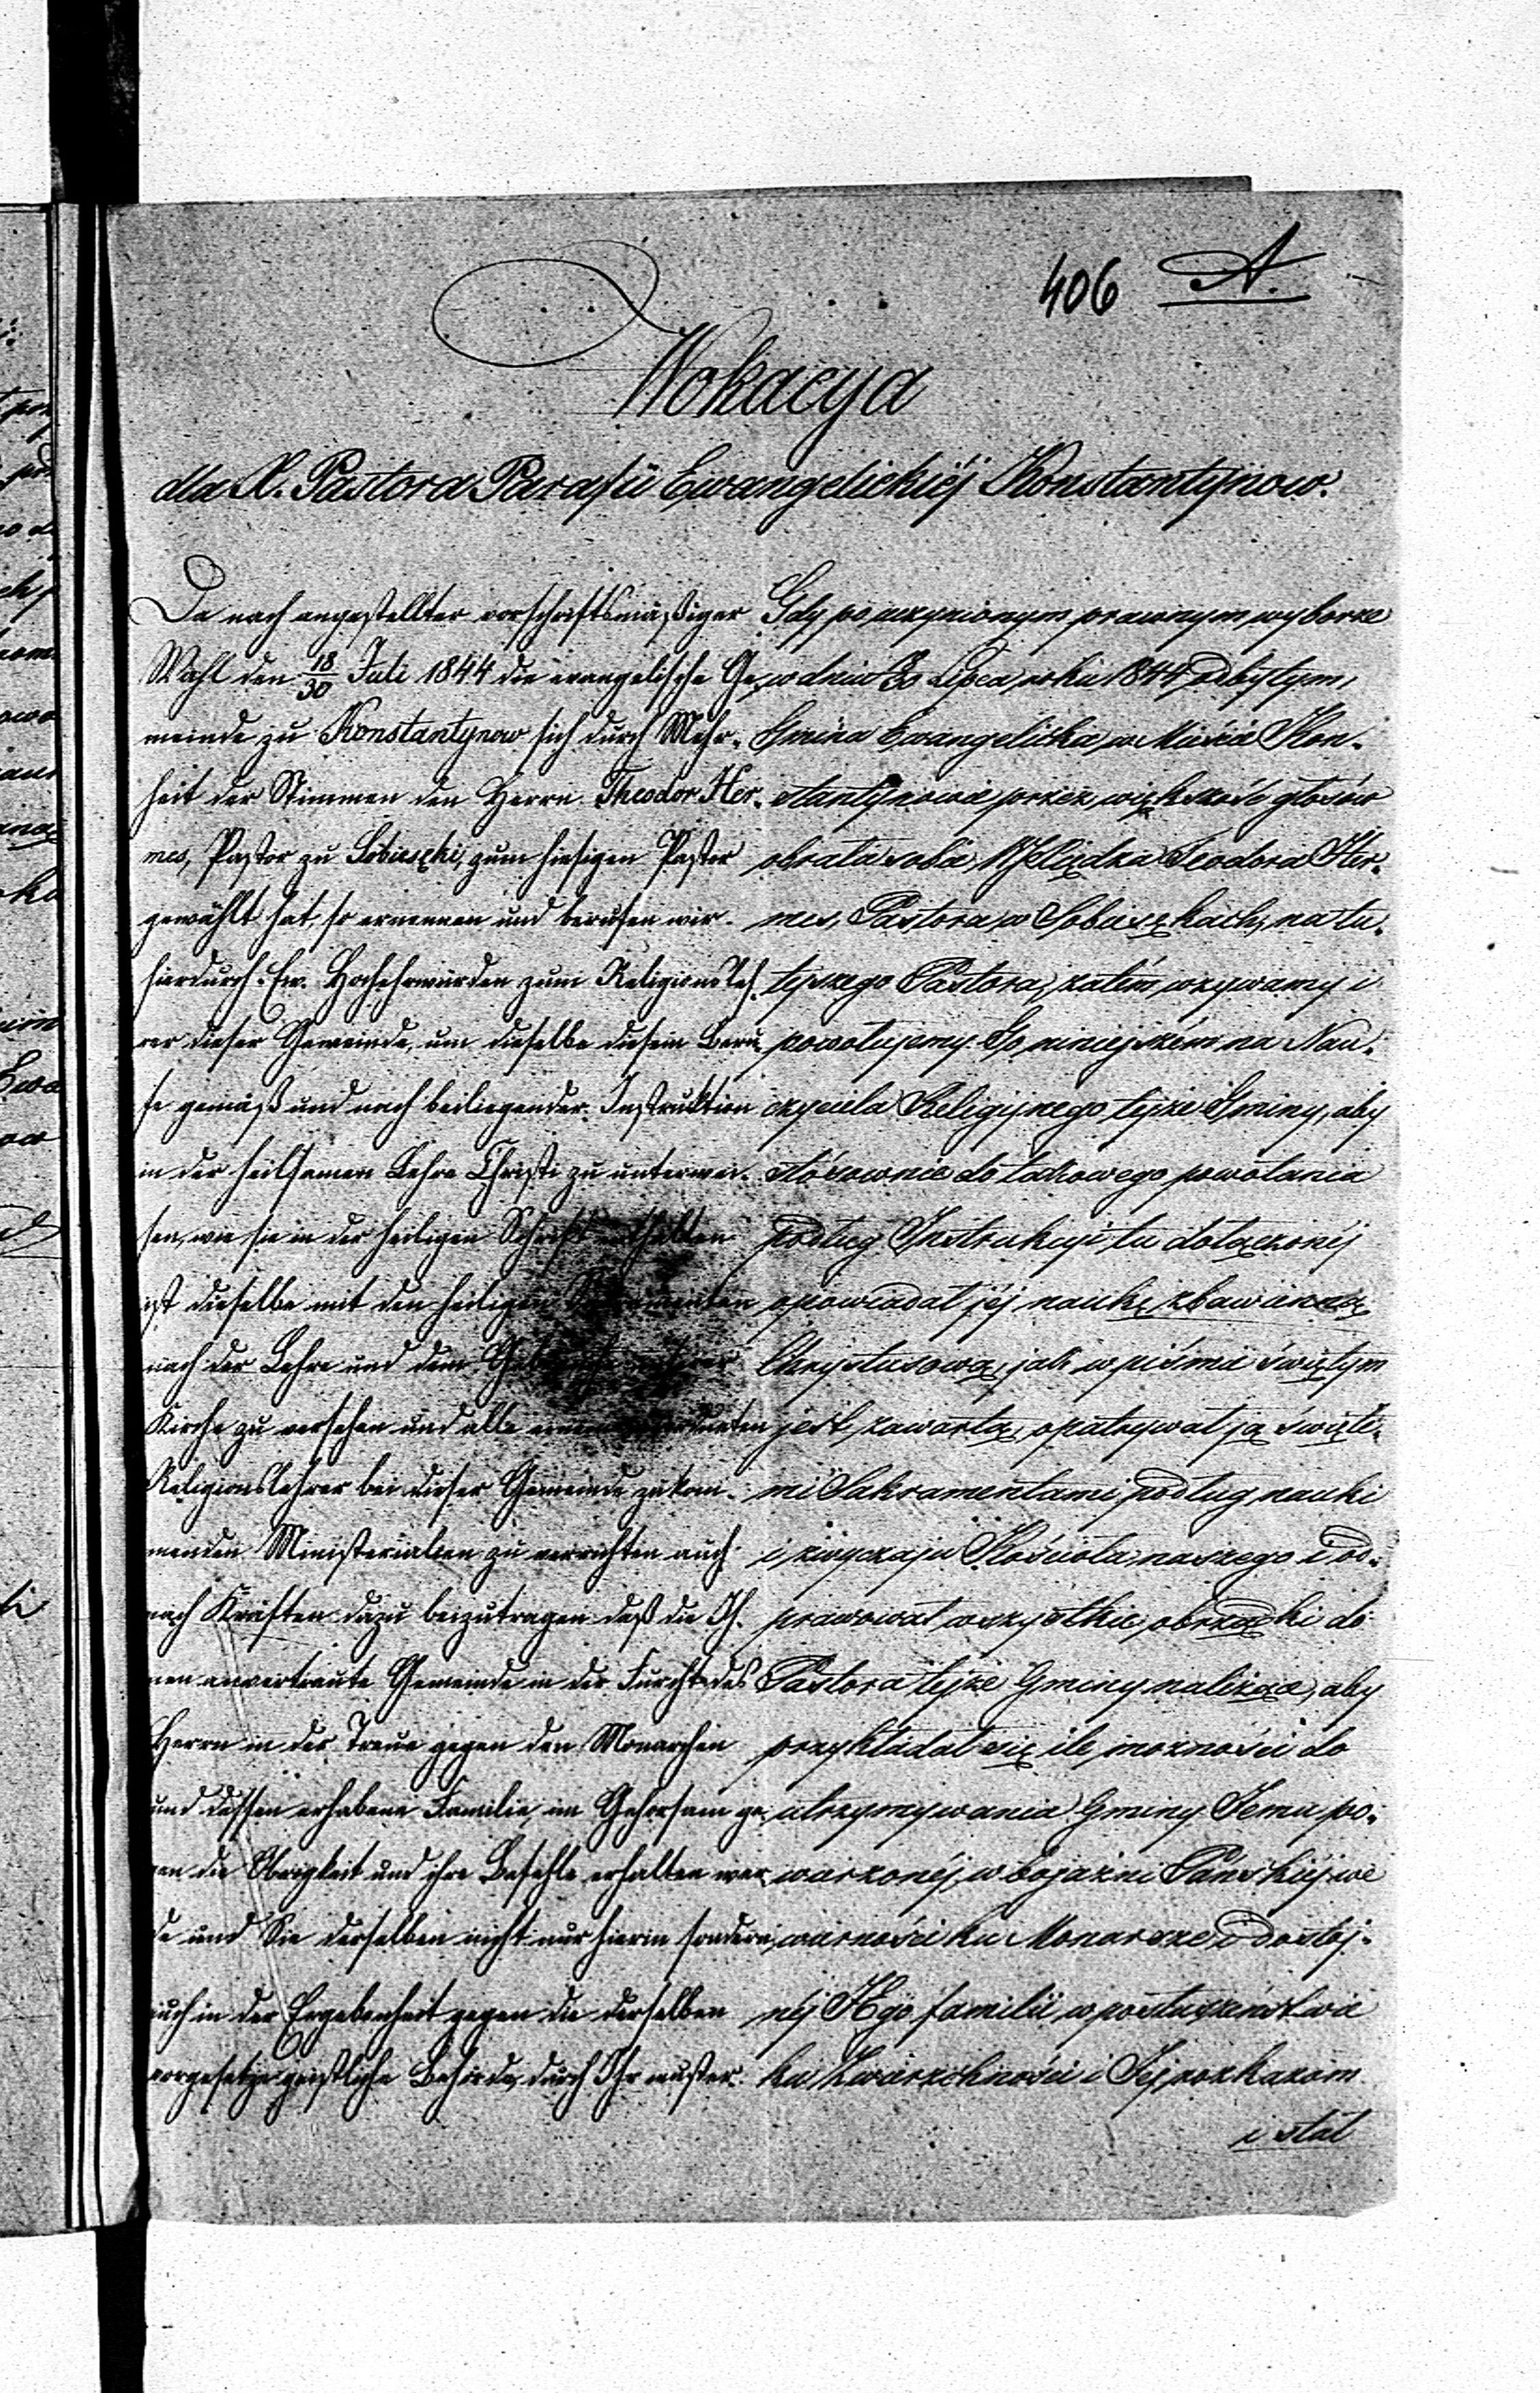 406 A.
Wokacya
dla X. Pastora Parafii Ewangelickiéj Konstantynow.
Da nach angestellter vorschriftsmäßiger
Wahl den 18/30 Juli 1844 die evangelische Ge-
meinde zu Konstantynow sich durch Mehr-
heit der Stimmen den Herrn Theodor Her-
mes, Pastor zu Sobiesęki, zum hiesigen Pastor
gewählt hat, so ernennen und berufen wir
hierdurch Ew. Hochehrwürden zum Religionsleh-
rer dieser Gemeinde, um dieselbe diesem Beru-
fe gemäß und nach beiliegender Instruktion
in der heilsamen Lehre Christi zu unterwei-
sen, wie sie in der heiligen Schrift enthalten
ist dieselbe mit den heiligen Sakramenten
nach der Lehre und dem
Kirche zu versehen und alle
Religionslehrer bei dieser Gemeinde zukom-
menden Ministerialien zu verrichten auch
nach Kräften dazu beizutragen daß die Ih-
nen anvertraute Gemeinde in der Furcht des
Herrn in der Treue gegen den Monarchen
und dessen erhabene Familie, im Gehorsam ge-
gen die Obrigkeit und ihre Befehle erhalten wer-
de und Sie derselben nicht nur hierin sondern
auch in der Ergebenheit gegen die derselben
vorgesetzte geistliche Behörde, durch Ihr muster-
Gdy po uczynionym prawnym wyborze
w dniu 30 Lipca roku 1844 odbytym,
Gmina Ewangelicka w Mieście Kon-
stantynowie przez większość głosów
obrała sobie Księdza Teodora Her-
mes, Pastora w Sobiesękach, na tu-
tejszego Pastora, zatém wzywamy i
powołujemy Go niniejszém na Nau-
czyciela Religijnego tejże Gminy, aby
stósownie do takowego powołania
podług Instrukcyi tu dołączonéj
opowiadał jéj naukę zbawienną
Chrystusową, jak w piśmie świętym
jest zawarta, opatrywał ją święte-
mi Sakramentami podług nauki
i zwyczaju Kościoła naszego i od-
prawiał wszystkie obrządki do
Pastora tejże Gminy należące, aby
przykładał się ile możności do
utrzymywania Gminy Jemu po-
wierzonéj, w bojaźni Pańskiéj we
wierności ku Monarsze i dostoj-
néj Jego familii w posłuszeństwie
ku Zwierzchności i Jej rozkazom
i stał